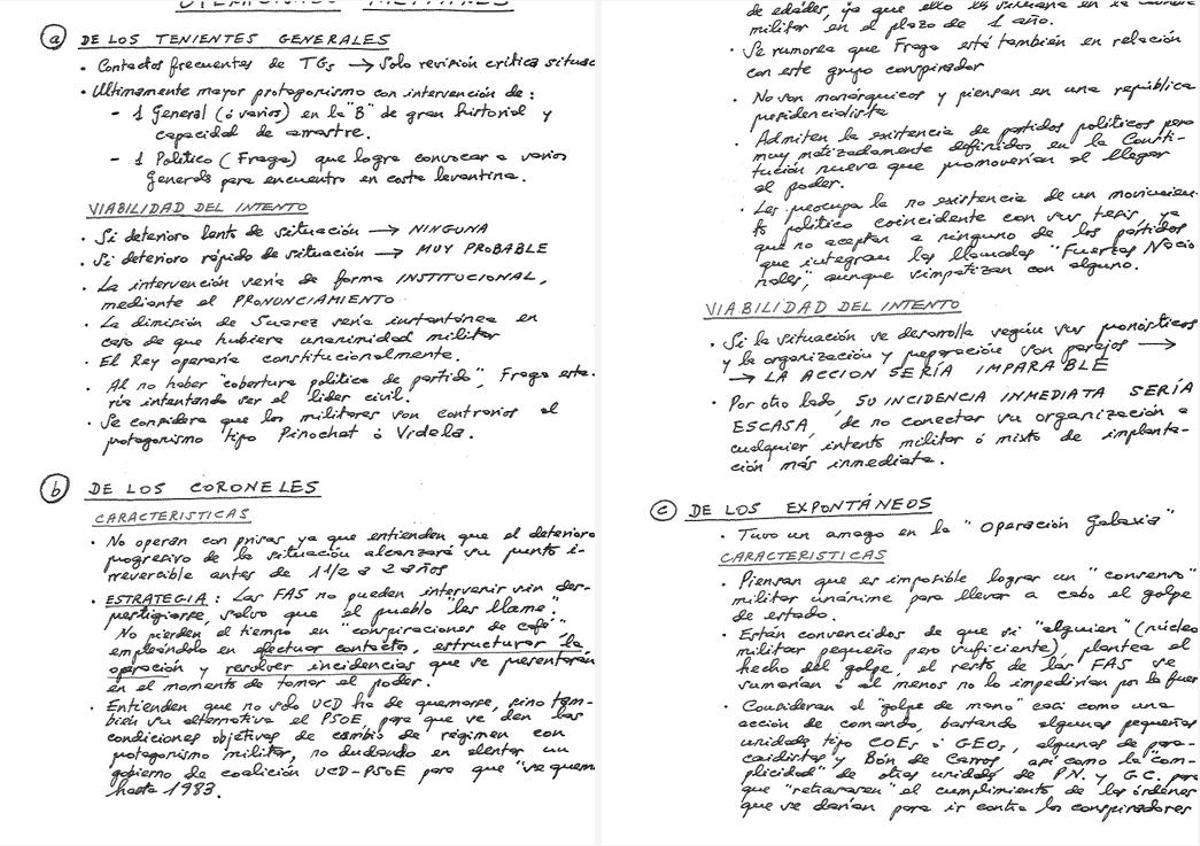 OPERACIONES MILITARES
ⓐ DE LOS TENIENTES GENERALES
· Contactos frecuentes de TGs → Solo revisión crítica situac
· Ultimamente mayor protagonismo con intervención de:
- 1 General (ó varios) en la "B" de gran historial y
capacidad de arrastre.
- 1 Politico (Fraga) que logra convocar a varios
Generals para encuentro en costa levantina.
VIABILIDAD DEL INTENTO
· Si deterioro lento de situación → NINGUNA
· Si deterioro rápido de situación → MUY PROBABLE
· La intervención seria de forma INSTITUCIONAL,
mediante el PRONUNCIAMIENTO
· La dimisión de Suarez sería instantánea en
caso de que hubiera unanimidad militar
· El Rey operaria constitucionalmente.
· Al no haber "cobertura politica de partido", Fraga esta-
ria intentando ser el lider civil.
· Se considera que los militares son contrarios al
protagonismo tipo Pinochet ó Videla.
ⓑ DE LOS CORONELES
CARACTERISTICAS
· No operan con prisas ya que entienden que el deterioro
progresivo de la situación alcanzará su punto i-
rreversible antes de 1 1/2 a 2 años
· ESTRATEGIA: Las FAS no pueden intervenir sin des-
prestigiarse, salvo que el pueblo "les llame".
No pierden el tiempo en "conspiraciones de café"
empleándolo en efectuar contactos, estructurar la
operación y resolver incidencias que se presentarán
en el momento de tomar el poder.
· Entienden que no sólo UCD ha de quemarse, sino tam-
bién su alternativa el PSOE, para que se den las
condiciones objetivas de cambio de régimen con
protagonismo militar, no dudando en alentar un
gobierno de coalición UCD-PSOE para que "se quem
hasta 1983.
de edades, ya que ello les
militar en el plazo de 1 año.
· Se rumorea que Fraga está también en relación
con este grupo conspirador
· No son monárquicos y piensan en una república
presidencialista
· Admiten la existencia de partidos políticos pero
muy matizadamente definidos en la Consti-
tución nueva que promoverían al llegar
al poder.
· Les preocupa la no existencia de un movimien-
to político coincidente con sus tesis, ya
que no aceptan a ninguno de los partidos
que integran las llamadas "Fuerzas Nacio
nales", aunque simpatizan con alguno.
VIABILIDAD DEL INTENTO
· Si la situación se desarrolla según sus pronósticos
y la organización y preparación son parejos →
→ LA ACCION SERÍA IMPARABLE
· Por otro lado, SU INCIDENCIA INMEDIATA SERÍA
ESCASA, de no conectar su organización a
cualquier intento militar ó mixto de implanta-
ción más inmediata.
ⓒ DE LOS EXPONTÁNEOS
· Tuvo un amago en la "Operación Galaxia"
CARACTERISTICAS
· Piensan que es imposible lograr un "consenso"
militar unánime para llevar a cabo el golpe
de estado.
· Están convencidos de que si "alguien" (núcleo
militar pequeño pero suficiente), plantea el
hecho del golpe, el resto de las FAS se
sumarian ó al menos no lo impedirían por la fuer
· Consideran el "golpe de mano" casi como una
acción de comando, bastando algunas pequeñas
unidades tipo COEs ó GEOs, algunas de para-
caidistas y Bón de Carros, así como la "com-
plicidad" de otras unidades de P.N. y G.C. para
que "retrasasen" el cumplimiento de las órdenes
que se darían para ir contra los conspiradores